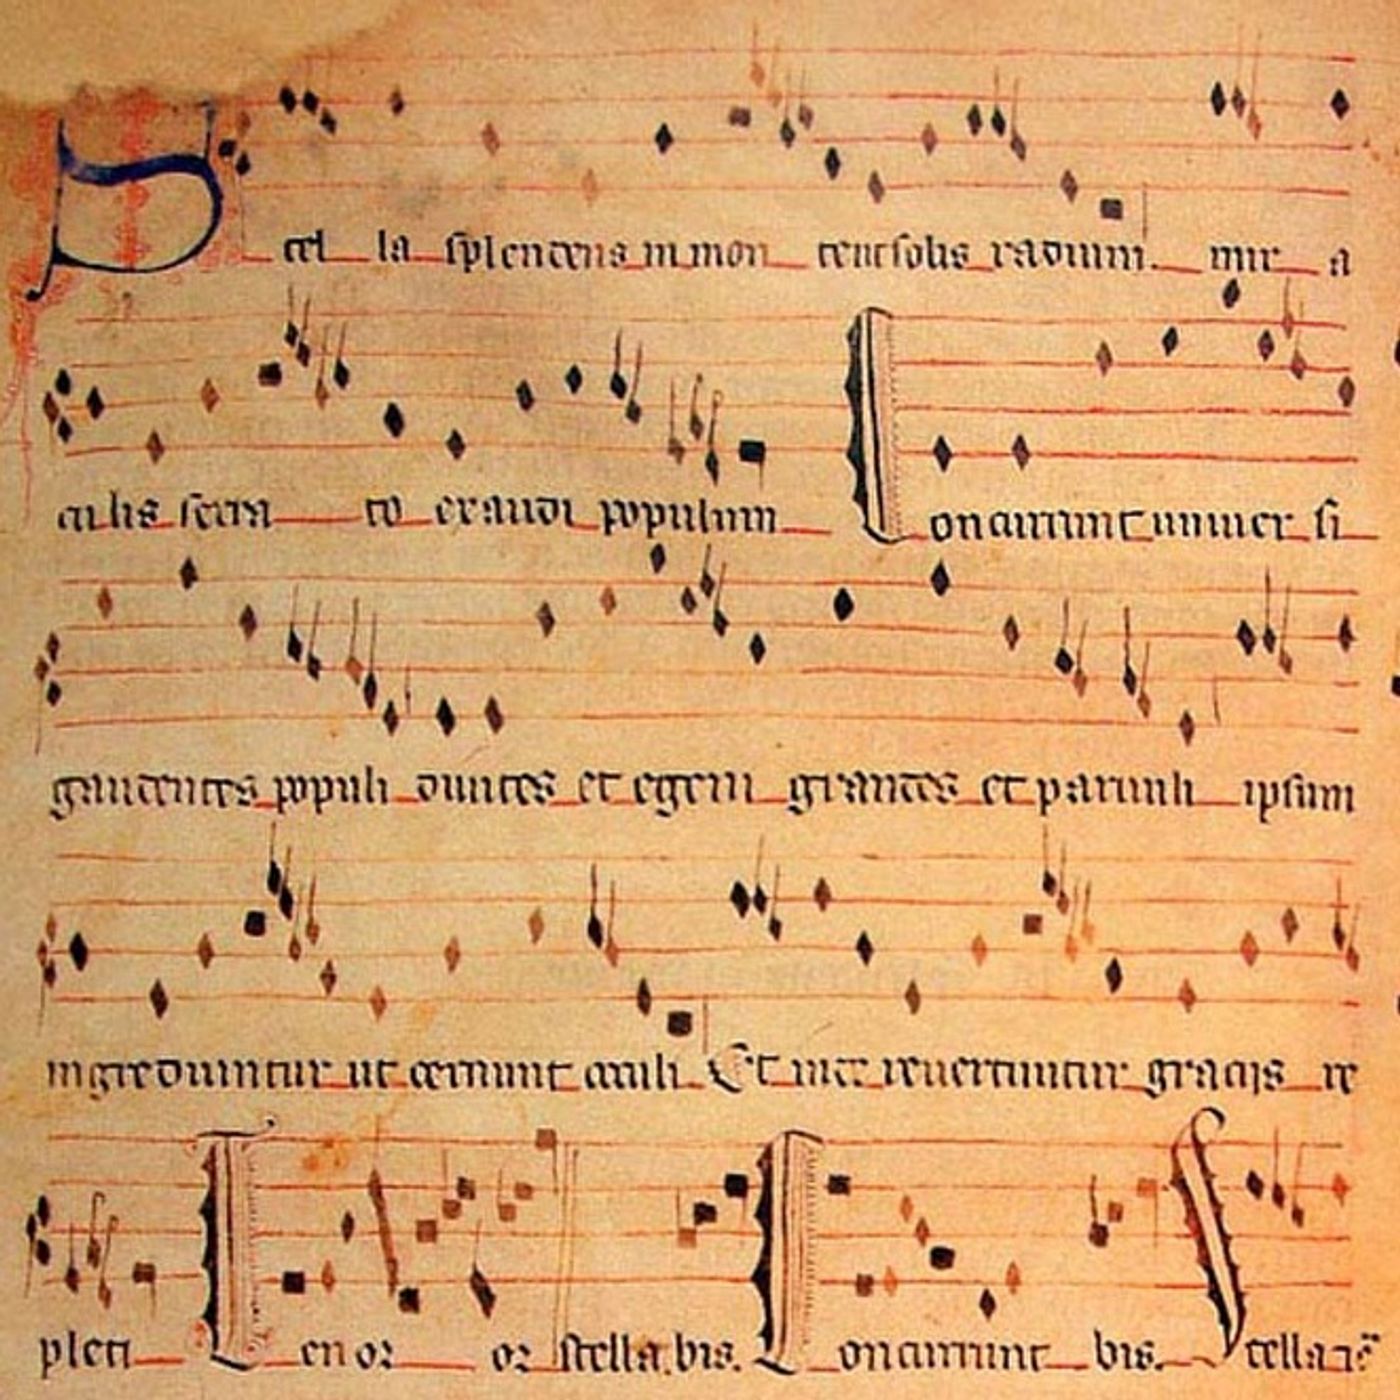 Stel la splendens in mon tent solis radium mir a
culis serra to exaudi populum Concurrunt univer si
gaudentes populi divites et egeni grandes et parvuli ipsum
ingrediuntur ut cernunt oculi Et inde revertuntur gracijs re
pleti Tenor or stella bis. Concurrunt bis. Stella